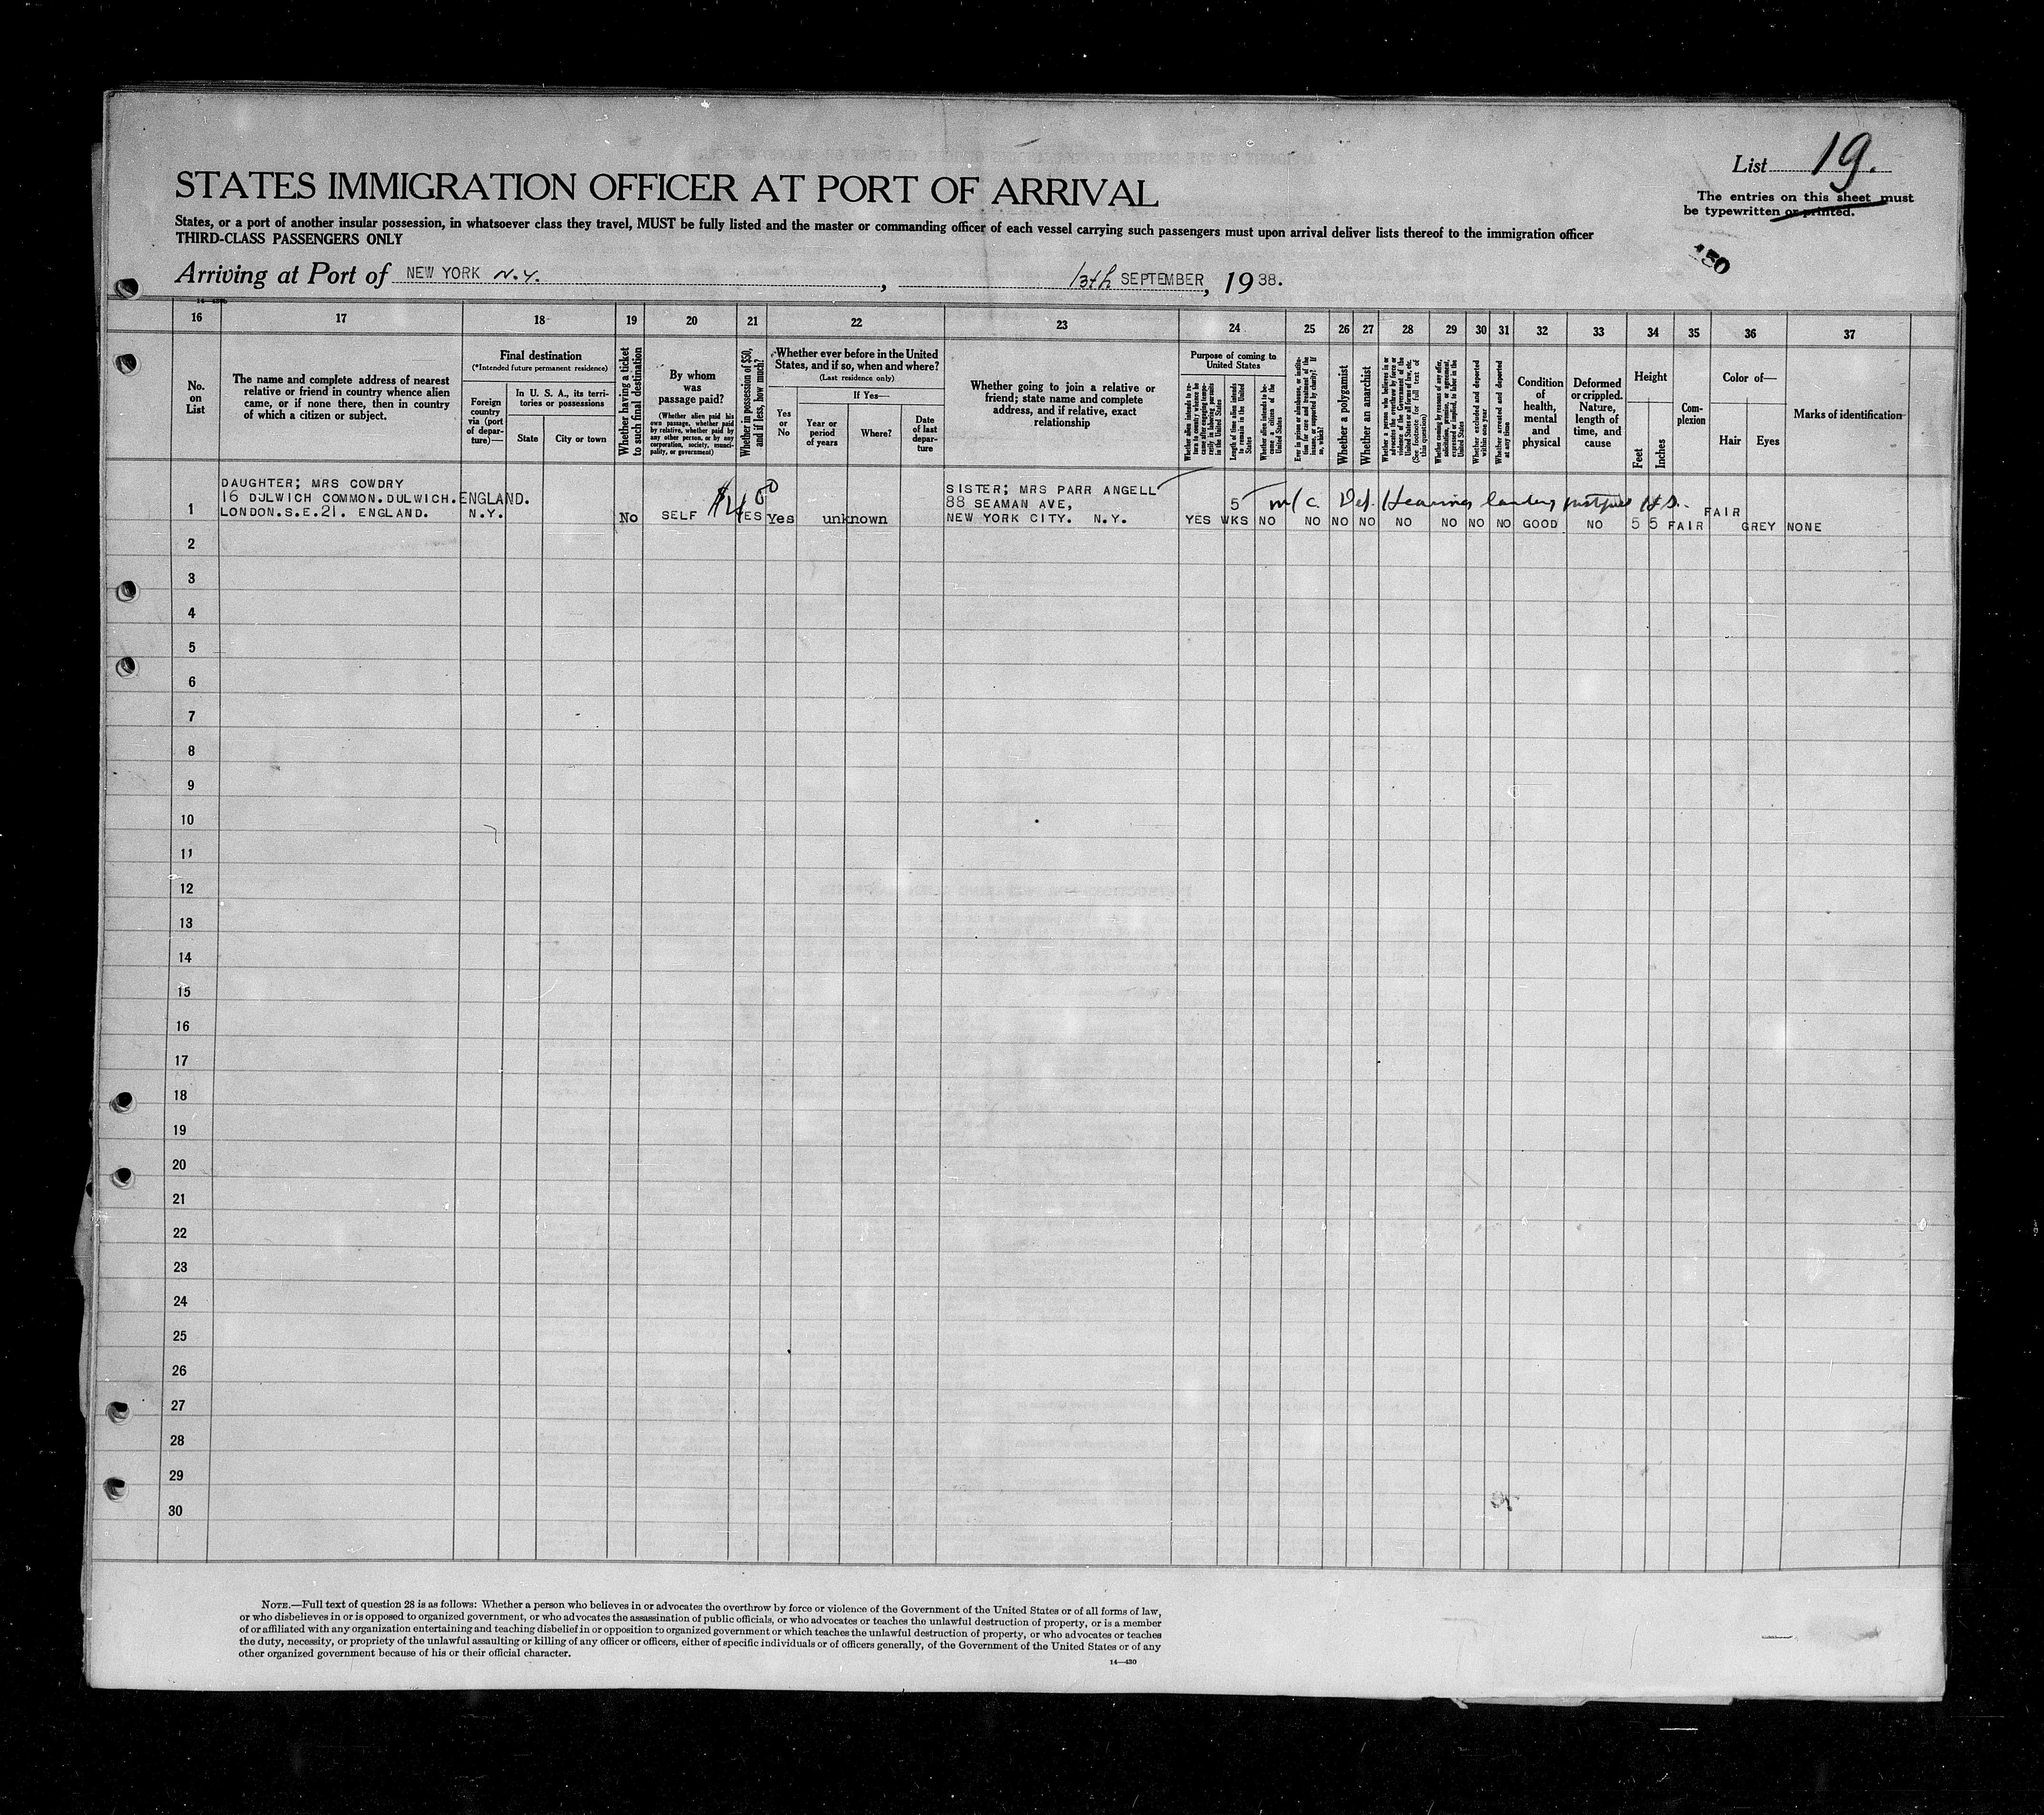 List 19.
The entries on this sheet must
be typewritten or printed.
150
STATES IMMIGRATION OFFICER AT PORT OF ARRIVAL
States, or a port of another insular possession, in whatsoever class they travel, MUST be fully listed and the master or commanding officer of each vessel carrying such passengers must upon arrival deliver lists thereof to the immigration officer
THIRD-CLASS PASSENGERS ONLY
Arriving at Port of NEW YORK N.Y. , 13th SEPTEMBER, 1938.
16 17 18 19 20 21 22 23 24 25 26 27 28 29 30 31 32 33 34 35 36 37
No.
on
List
The name and complete address of nearest
relative or friend in country whence alien
came, or if none there, then in country
of which a citizen or subject.
Final destination
(*Intended future permanent residence)
Foreign
country
via (port
of depar-
ture)—
In U. S. A., its terri-
tories or possessions
State
City or town
Whether having a ticket
to such final destination
By whom
was
passage paid?
(Whether alien paid his
own passage, whether paid
by relative, whether paid by
any other person, or by any
corporation, society, munici-
pality, or government)
Whether in possession of $50,
and if less, how much?
Whether ever before in the United
States, and if so, when and where?
(Last residence only)
Yes
or
No
If Yes—
Year or
period
of years
Where?
Date
of last
depar-
ture
Whether going to join a relative or
friend; state name and complete
address, and if relative, exact
relationship
Purpose of coming to
United States
Whether alien intends to re-
turn to country whence he
came after engaging tempo-
rarily in laboring pursuits
in the United States
Length of time alien intends
to remain in the United
States
Whether alien intends to be-
come a citizen of the
United States
Ever in prison or almshouse, or institu-
tion for care and treatment of the
insane, or supported by charity? If
so, which?
Whether a polygamist
Whether an anarchist
Whether a person who believes in or
advocates the overthrow by force or
violence of the Government of the
United States or all forms of law, etc.
(See footnote for full text of
this question)
Whether coming by reason of any offer,
solicitation, promise, or agreement,
expressed or implied, to labor in the
United States
Whether excluded and deported
within one year
Whether arrested and deported
at any time
Condition
of
health,
mental
and
physical
Deformed
or crippled.
Nature,
length of
time, and
cause
Height
Feet
Inches
Com-
plexion
Color of—
Hair
Eyes
Marks of identification
DAUGHTER; MRS COWDRY
16 DULWICH COMMON.DULWICH.ENGLAND.
LONDON.S.E.21. ENGLAND. N.Y.
No SELF YES Yes unknown
SISTER; MRS PARR ANGELL
88 SEAMAN AVE,
NEW YORK CITY. N.Y.
5
YES WKS NO NO NO NO NO NO NO NO GOOD NO 5 5 FAIR FAIR GREY NONE
1
2
3
4
5
6
7
8
9
10
11
12
13
14
15
16
17
18
19
20
21
22
23
24
25
26
27
28
29
30
NOTE.—Full text of question 28 is as follows: Whether a person who believes in or advocates the overthrow by force or violence of the Government of the United States or of all forms of law,
or who disbelieves in or is opposed to organized government, or who advocates the assassination of public officials, or who advocates or teaches the unlawful destruction of property, or is a member
of or affiliated with any organization entertaining and teaching disbelief in or opposition to organized government or which teaches the unlawful destruction of property, or who advocates or teaches
the duty, necessity, or propriety of the unlawful assaulting or killing of any officer or officers, either of specific individuals or of officers generally, of the Government of the United States or of any
other organized government because of his or their official character.
14—430